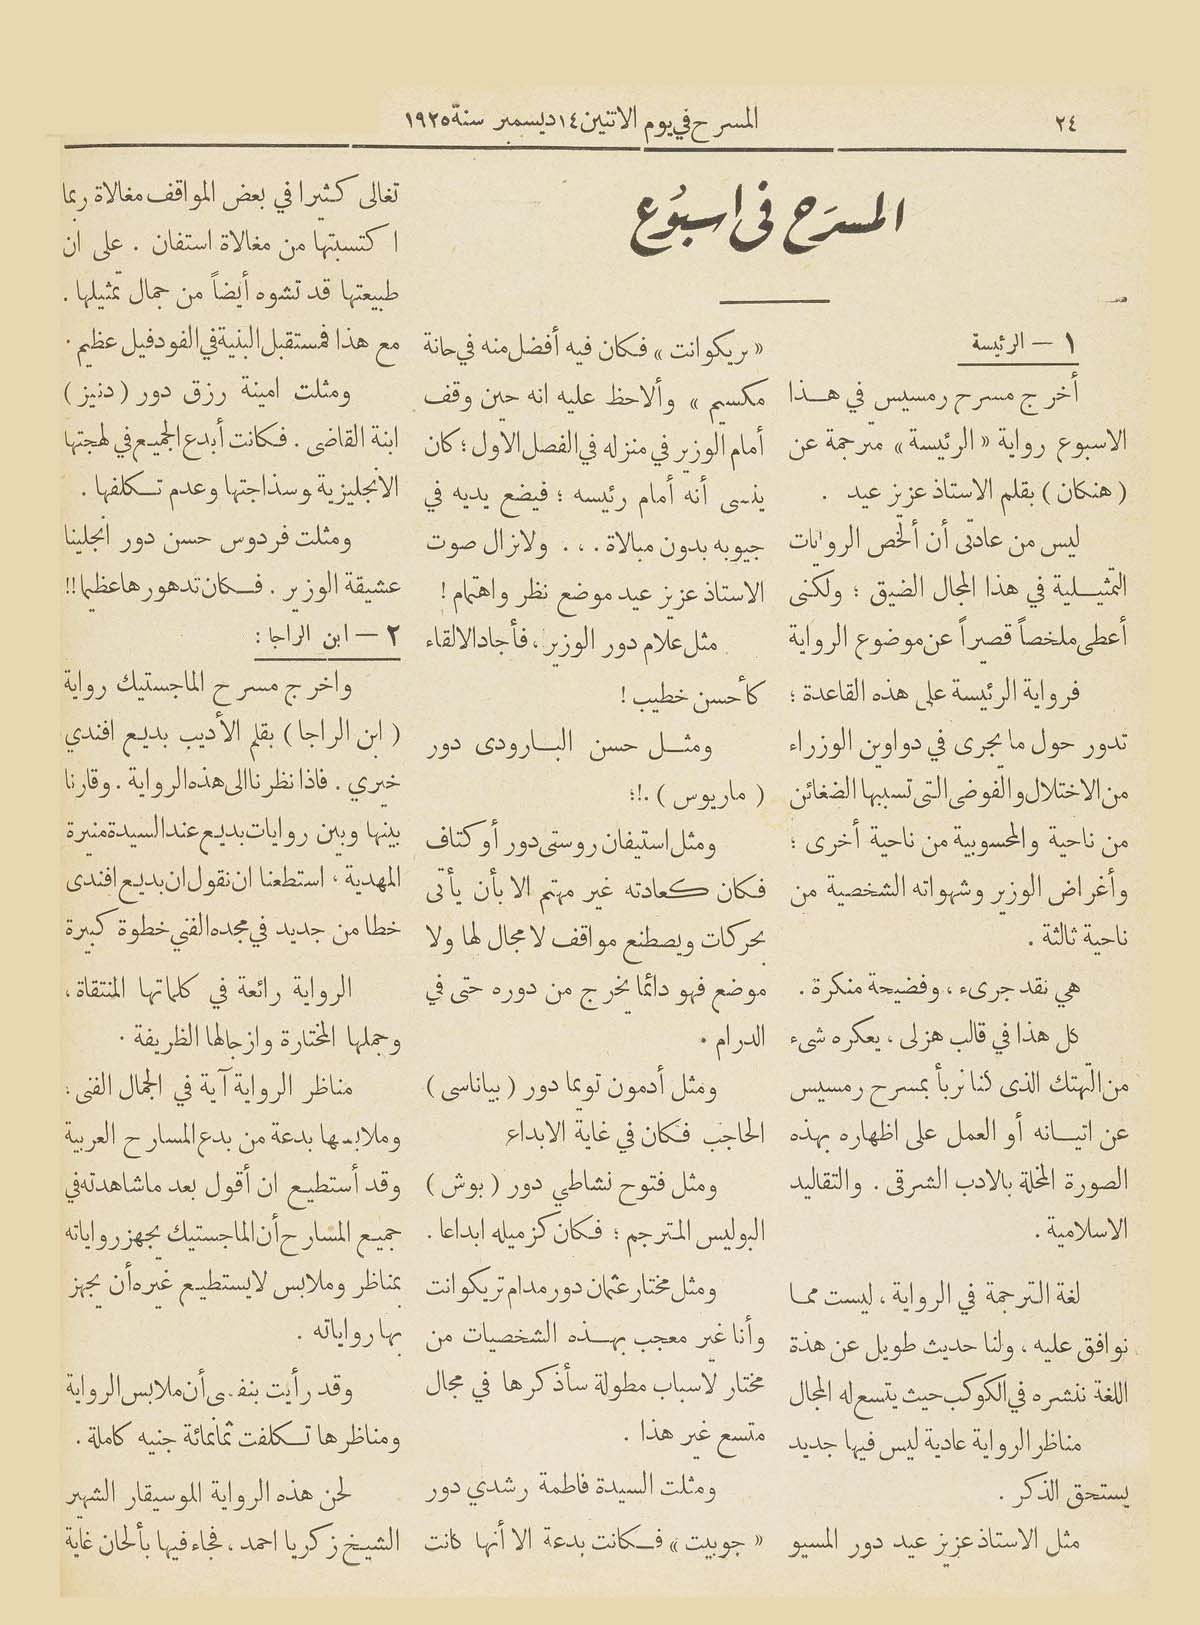 ٢٤
المسرح في يوم الاثنين ١٤ ديسمبر سنة ١٩٢٥
المسرح فى اسبوع
١ — الرئيسة
أخرج مسرح رمسيس في هذا
الاسبوع رواية «الرئيسة» مترجمة عن
(هنكان) بقلم الاستاذ عزيز عيد .
ليس من عادتى أن ألخص الروايات
التمثيلية في هذا المجال الضيق ؛ ولكنى
أعطى ملخصاً قصيراً عن موضوع الرواية
فرواية الرئيسة على هذه القاعدة ؛
تدور حول ما يجرى في دواوين الوزراء
من الاختلال والفوضى التى تسببها الضغائن
من ناحية والمحسوبية من ناحية أخرى ؛
وأغراض الوزير وشهواته الشخصية من
ناحية ثالثة .
هي نقد جرىء ، وفضيحة منكرة .
كل هذا في قالب هزلى ، يعكره شىء
من التهتك الذى كنا نربأ بمسرح رمسيس
عن اتيانه أو العمل على اظهاره بهذه
الصورة المخلة بالادب الشرقى . والتقاليد
الاسلامية .
لغة الترجمة في الرواية ، ليست مما
نوافق عليه ، ولنا حديث طويل عن هذة
اللغة ننشره في الكوكب حيث يتسع له المجال
مناظر الرواية عادية ليس فيها جديد
يستحق الذكر .
مثل الاستاذ عزيز عيد دور المسيو
«بريكوانت» فكان فيه أفضل منه في حانة
مكسيم » وألاحظ عليه انه حين وقف
أمام الوزير في منزله في الفصل الاول ؛ كان
ينسى أنه أمام رئيسه ؛ فيضع يديه في
جيوبه بدون مبالاة ... ولازال صوت
الاستاذ عزيز عيد موضع نظر واهتمام !
مثل علام دور الوزير ، فأجاد الالقاء
كأحسن خطيب !
ومثل حسن البارودى دور
(ماريوس) .!؛
ومثل استيفان روستى دور أوكتاف
فكان كعادته غير مهتم الا بأن يأتى
بحركات ويصطنع مواقف لا مجال لها ولا
موضع فهو دائما يخرج من دوره حتى في
الدرام .
ومثل أدمون تويما دور (بياناسى)
الحاجب فكان في غاية الابداع
ومثل فتوح نشاطي دور (بوش)
البوليس المترجم ؛ فكان كزميله ابداعا .
ومثل مختار عثمان دور مدام تريكوانت
وأنا غير معجب بهذه الشخصيات من
مختار لاسباب مطولة سأذكرها في مجال
متسع غير هذا .
ومثلت السيدة فاطمة رشدي دور
«جوبيت» فكانت بدعة الا أنها كانت
تغالى كثيرا في بعض المواقف مغالاة ربما
اكتسبتها من مغالاة استفان . على ان
طبيعتها قد تشوه أيضاً من جمال تمثيلها .
مع هذا فمستقبل البنية في الفودفيل عظيم .
ومثلت امينة رزق دور (دنيز)
ابنة القاضى . فكانت أبدع الجميع في لهجتها
الانجليزية وسذاجتها وعدم تكلفها .
ومثلت فردوس حسن دور انجلينا
عشيقة الوزير . فكان تدهورها عظيما !!
٢ — ابن الراجا :
واخرج مسرح الماجستيك رواية
(ابن الراجا) بقلم الأديب بديع افندي
خيري . فاذا نظرنا الى هذه الرواية . وقارنا
بينها وبين روايات بديع عند السيدة منيرة
المهدية ، استطعنا ان نقول ان بديع افندى
خطا من جديد في مجده الفني خطوة كبيرة
الرواية رائعة في كلماتها المنتقاة ،
وجملها المختارة وازجالها الظريفة .
مناظر الرواية آية في الجمال الفنى ،
وملابسها بدعة من بدع المسارح العربية
وقد أستطيع ان أقول بعد ما شاهدته في
جميع المسارح أن الماجستيك يجهز رواياته
بمناظر وملابس لا يستطيع غيره أن يجهز
بها رواياته .
وقد رأيت بنفسى أن ملابس الرواية
ومناظرها تكلفت ثمانمائة جنيه كاملة .
لحن هذه الرواية الموسيقار الشهير
الشيخ زكريا احمد ، فجاء فيها بألحان غاية